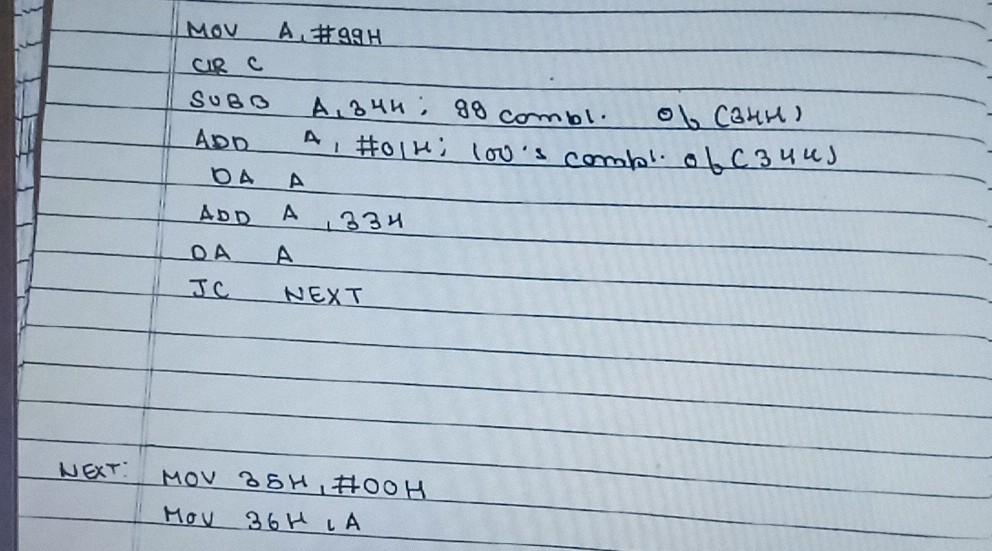 MOV A, #99H
CLR C
SUBB A, 34H ; 99 compl. Of (34H)
ADD A, #01H ; 100's compl. of (34H)
DA A
ADD A, 33H
DA A
JC NEXT
NEXT: MOV 35H, #00H
MOV 36H, A